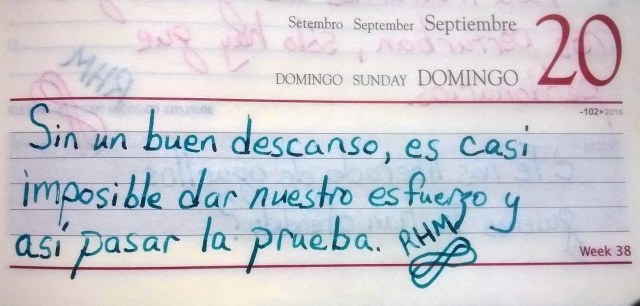 Setembro September Septiembre
20
DOMINGO SUNDAY DOMINGO
-102▸2016
Sin un buen descanso, es casi
imposible dar nuestro esfuerzo y
así pasar la prueba. RHM
Week 38